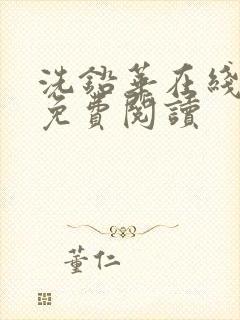 洗鉛華在綫
免費閱讀
董仁